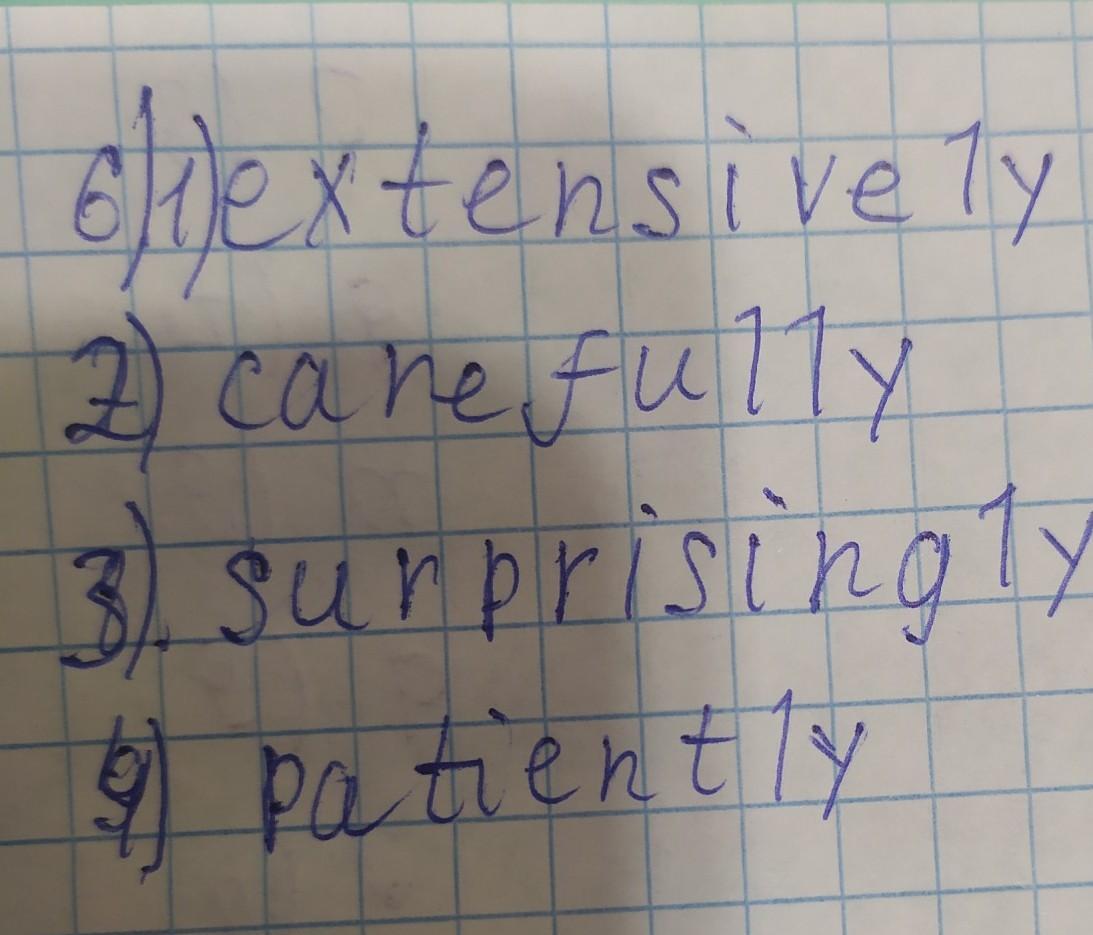 6)1) extensively
2) carefully
3). surprisingly
4) patiently